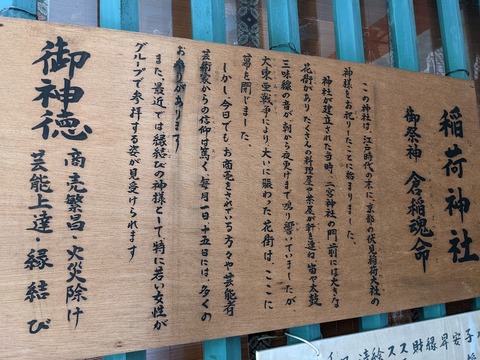 稲荷神社
御祭神 倉稲魂命
この神社は、江戸時代の末に、京都の伏見稲荷大社の
神様をお祀りしたことに始まりました。
神社が建立された当時、二宮神社の門前には大きな
花街があり たくさんの料理屋や茶屋が軒を連ね 笛や太鼓
三味線の音が朝から夜更けまで鳴り響いていましたが
大東亜戦争により、大いに賑わった花街は、ここに
幕を閉じました。
しかし、今日でも、お商売をされている方々や芸能者
芸術家からの信仰は篤く、毎月一日、十五日には、多くの
お参りがあります
また、最近では縁結びの神様として、特に若い女性が
グループで参拝する姿が見受けられます
御神徳 商売繁昌・火災除け
芸能上達・縁結び
子
安
早
縁
財
ス
ス
絵